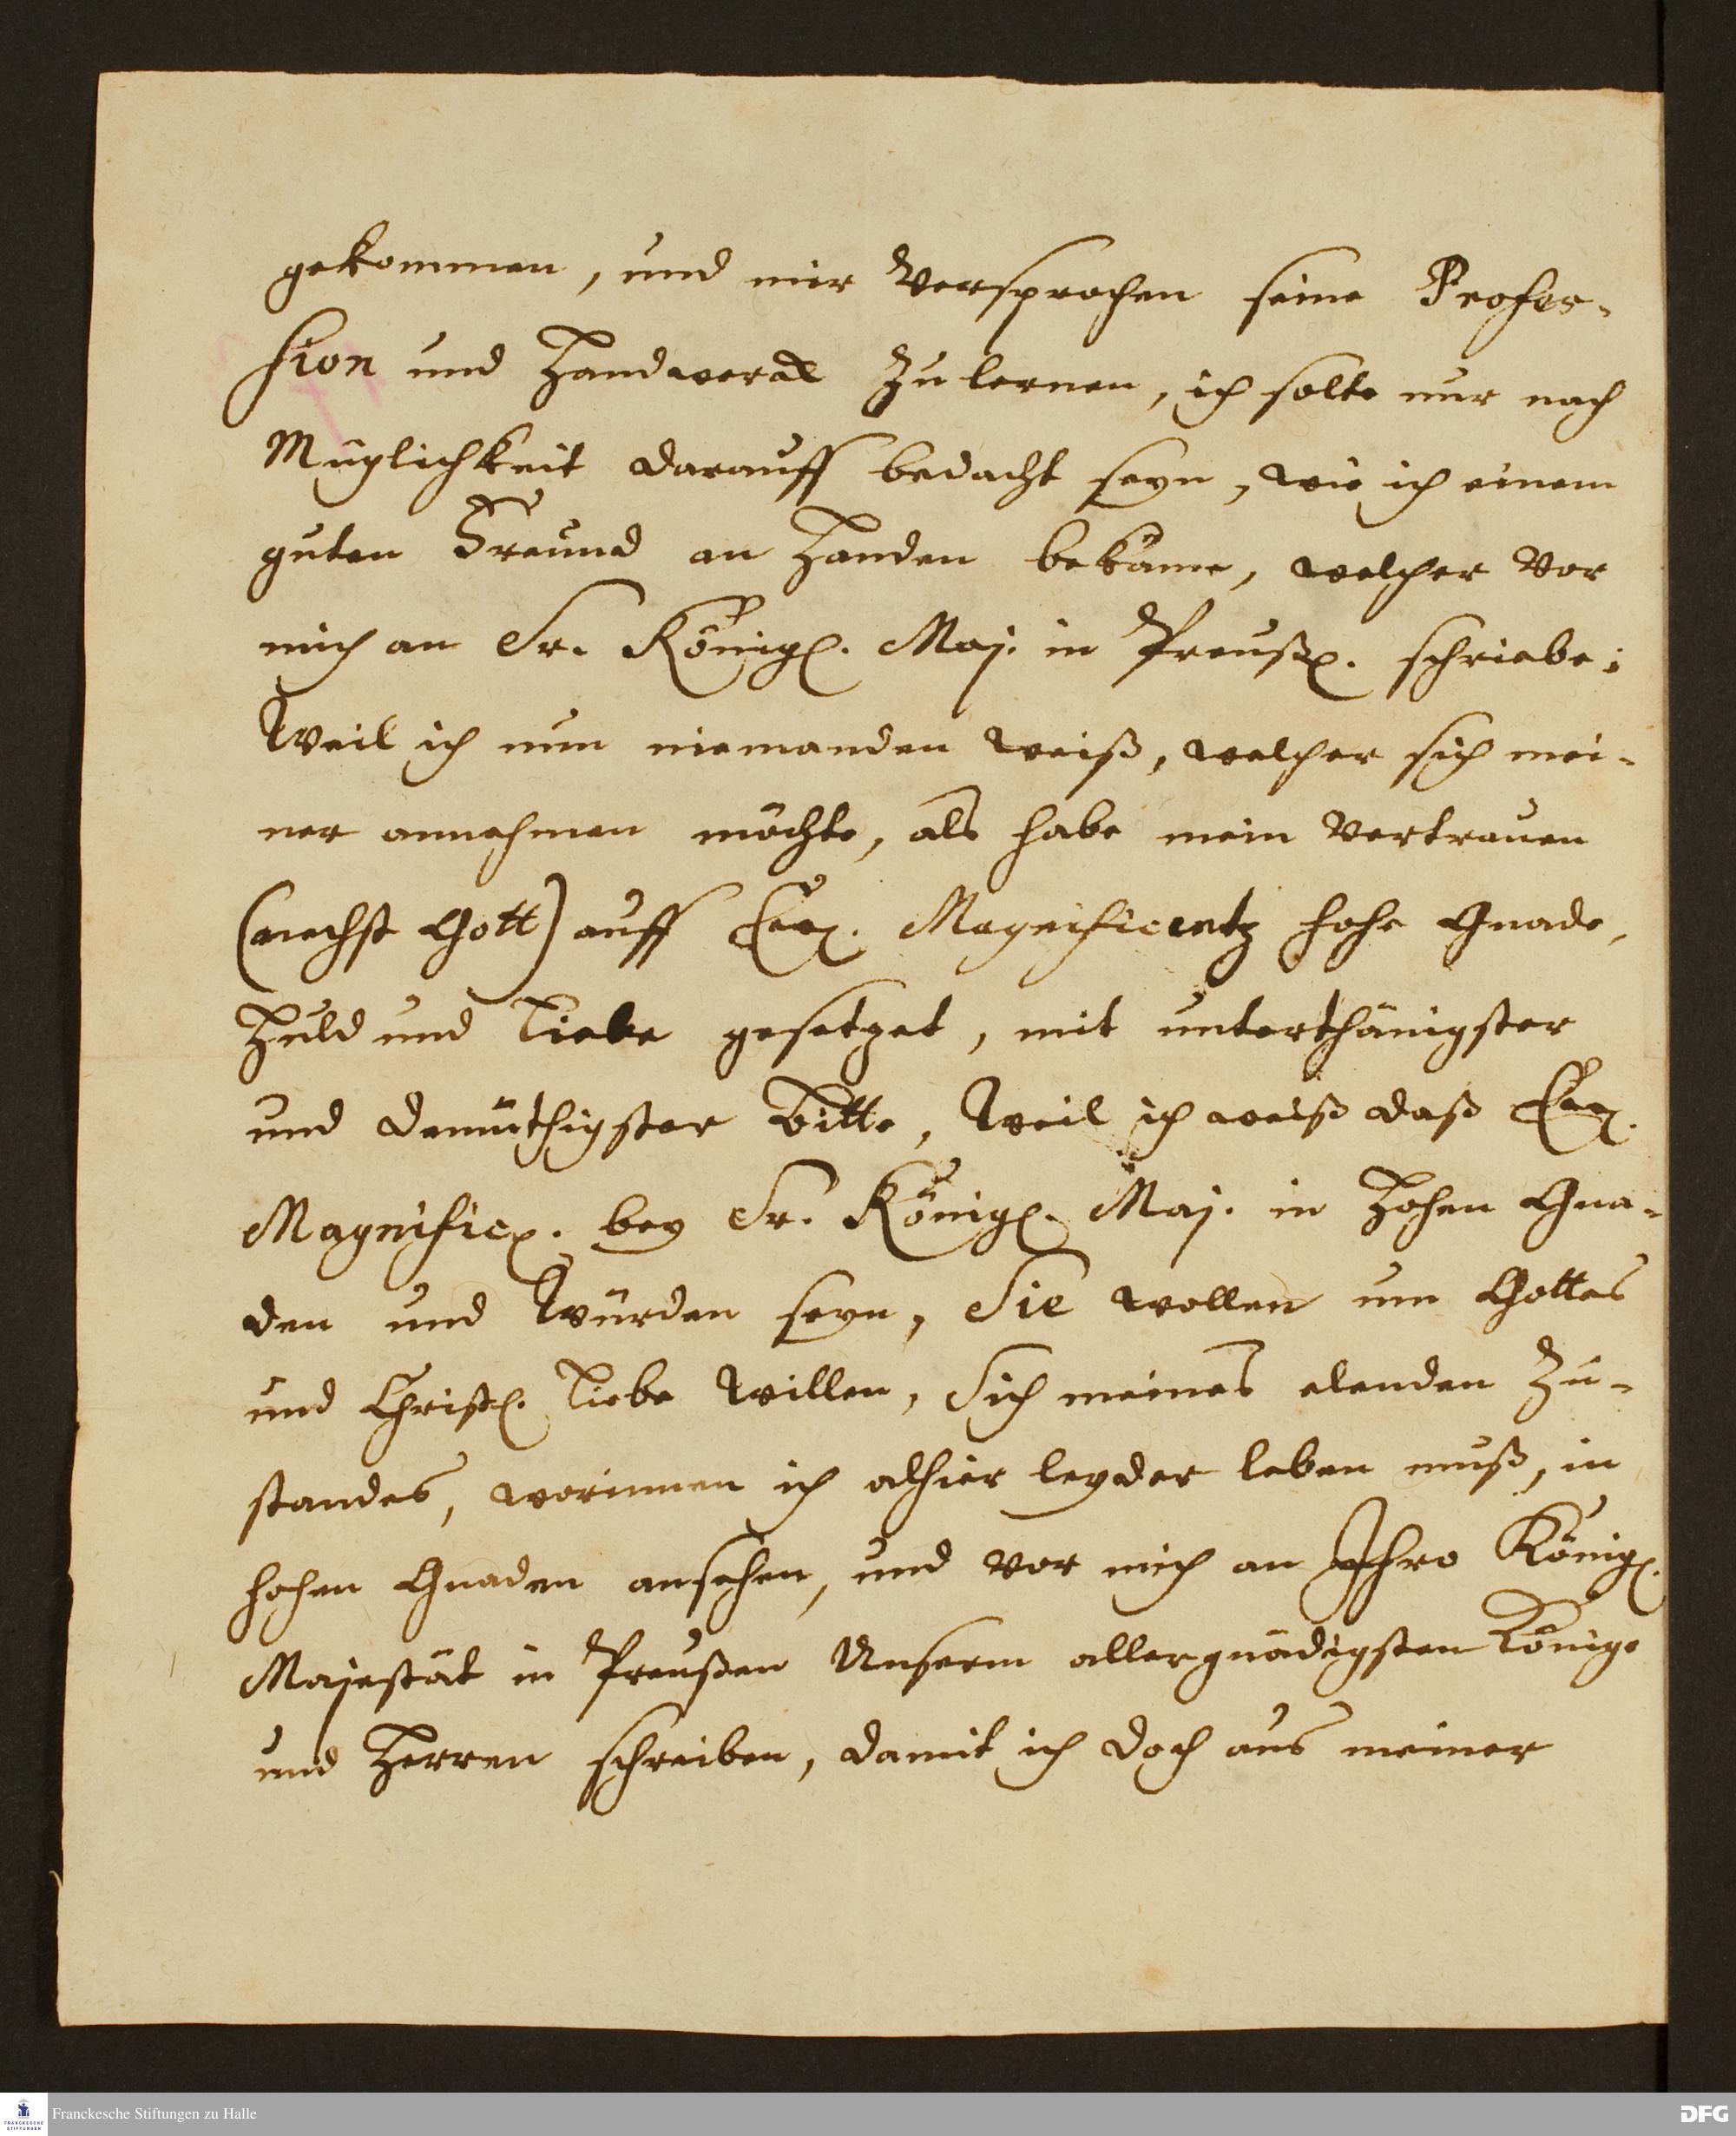 gekommen, und mir Versprochen seine Profes-
sion und Handwerck zu lernen, ich solte nur nach
Müglichkeit darauff bedacht seyn, wie ich einem
guten Freund an Handen bekäme, welcher vor
mich an Sr. Königl. Maj. in Preußl. schriebe;
Weil ich nun niemanden weiß, welcher sich mei-
ner annehmen möchte, als habe mein Vertrauen
(nechst Gott) auff Ew. Magnificentz hohe Gnade,
Huld und Liebe gesetzet, mit unterthänigster
und demüthigster Bitte, Weil ich weiß daß Ew.
Magnific. bey Sr. Königl. Maj. in Hohen Gna-
den und Würden seyn, Sie wollen um Gottes
und Christl. Liebe Willen, Sich meines elenden Zu-
standes, worinnen ich alhier leyder leben muß, in
hohen Gnaden ansehen, und vor mich an Ihro Königl.
Majestät in Preußen Unserm allergnädigsten Könige
und Herren schreiben, damit ich doch aus meiner
Franckesche Stiftungen zu Halle
FRANCKESCHE
STIFTUNGEN
DFG